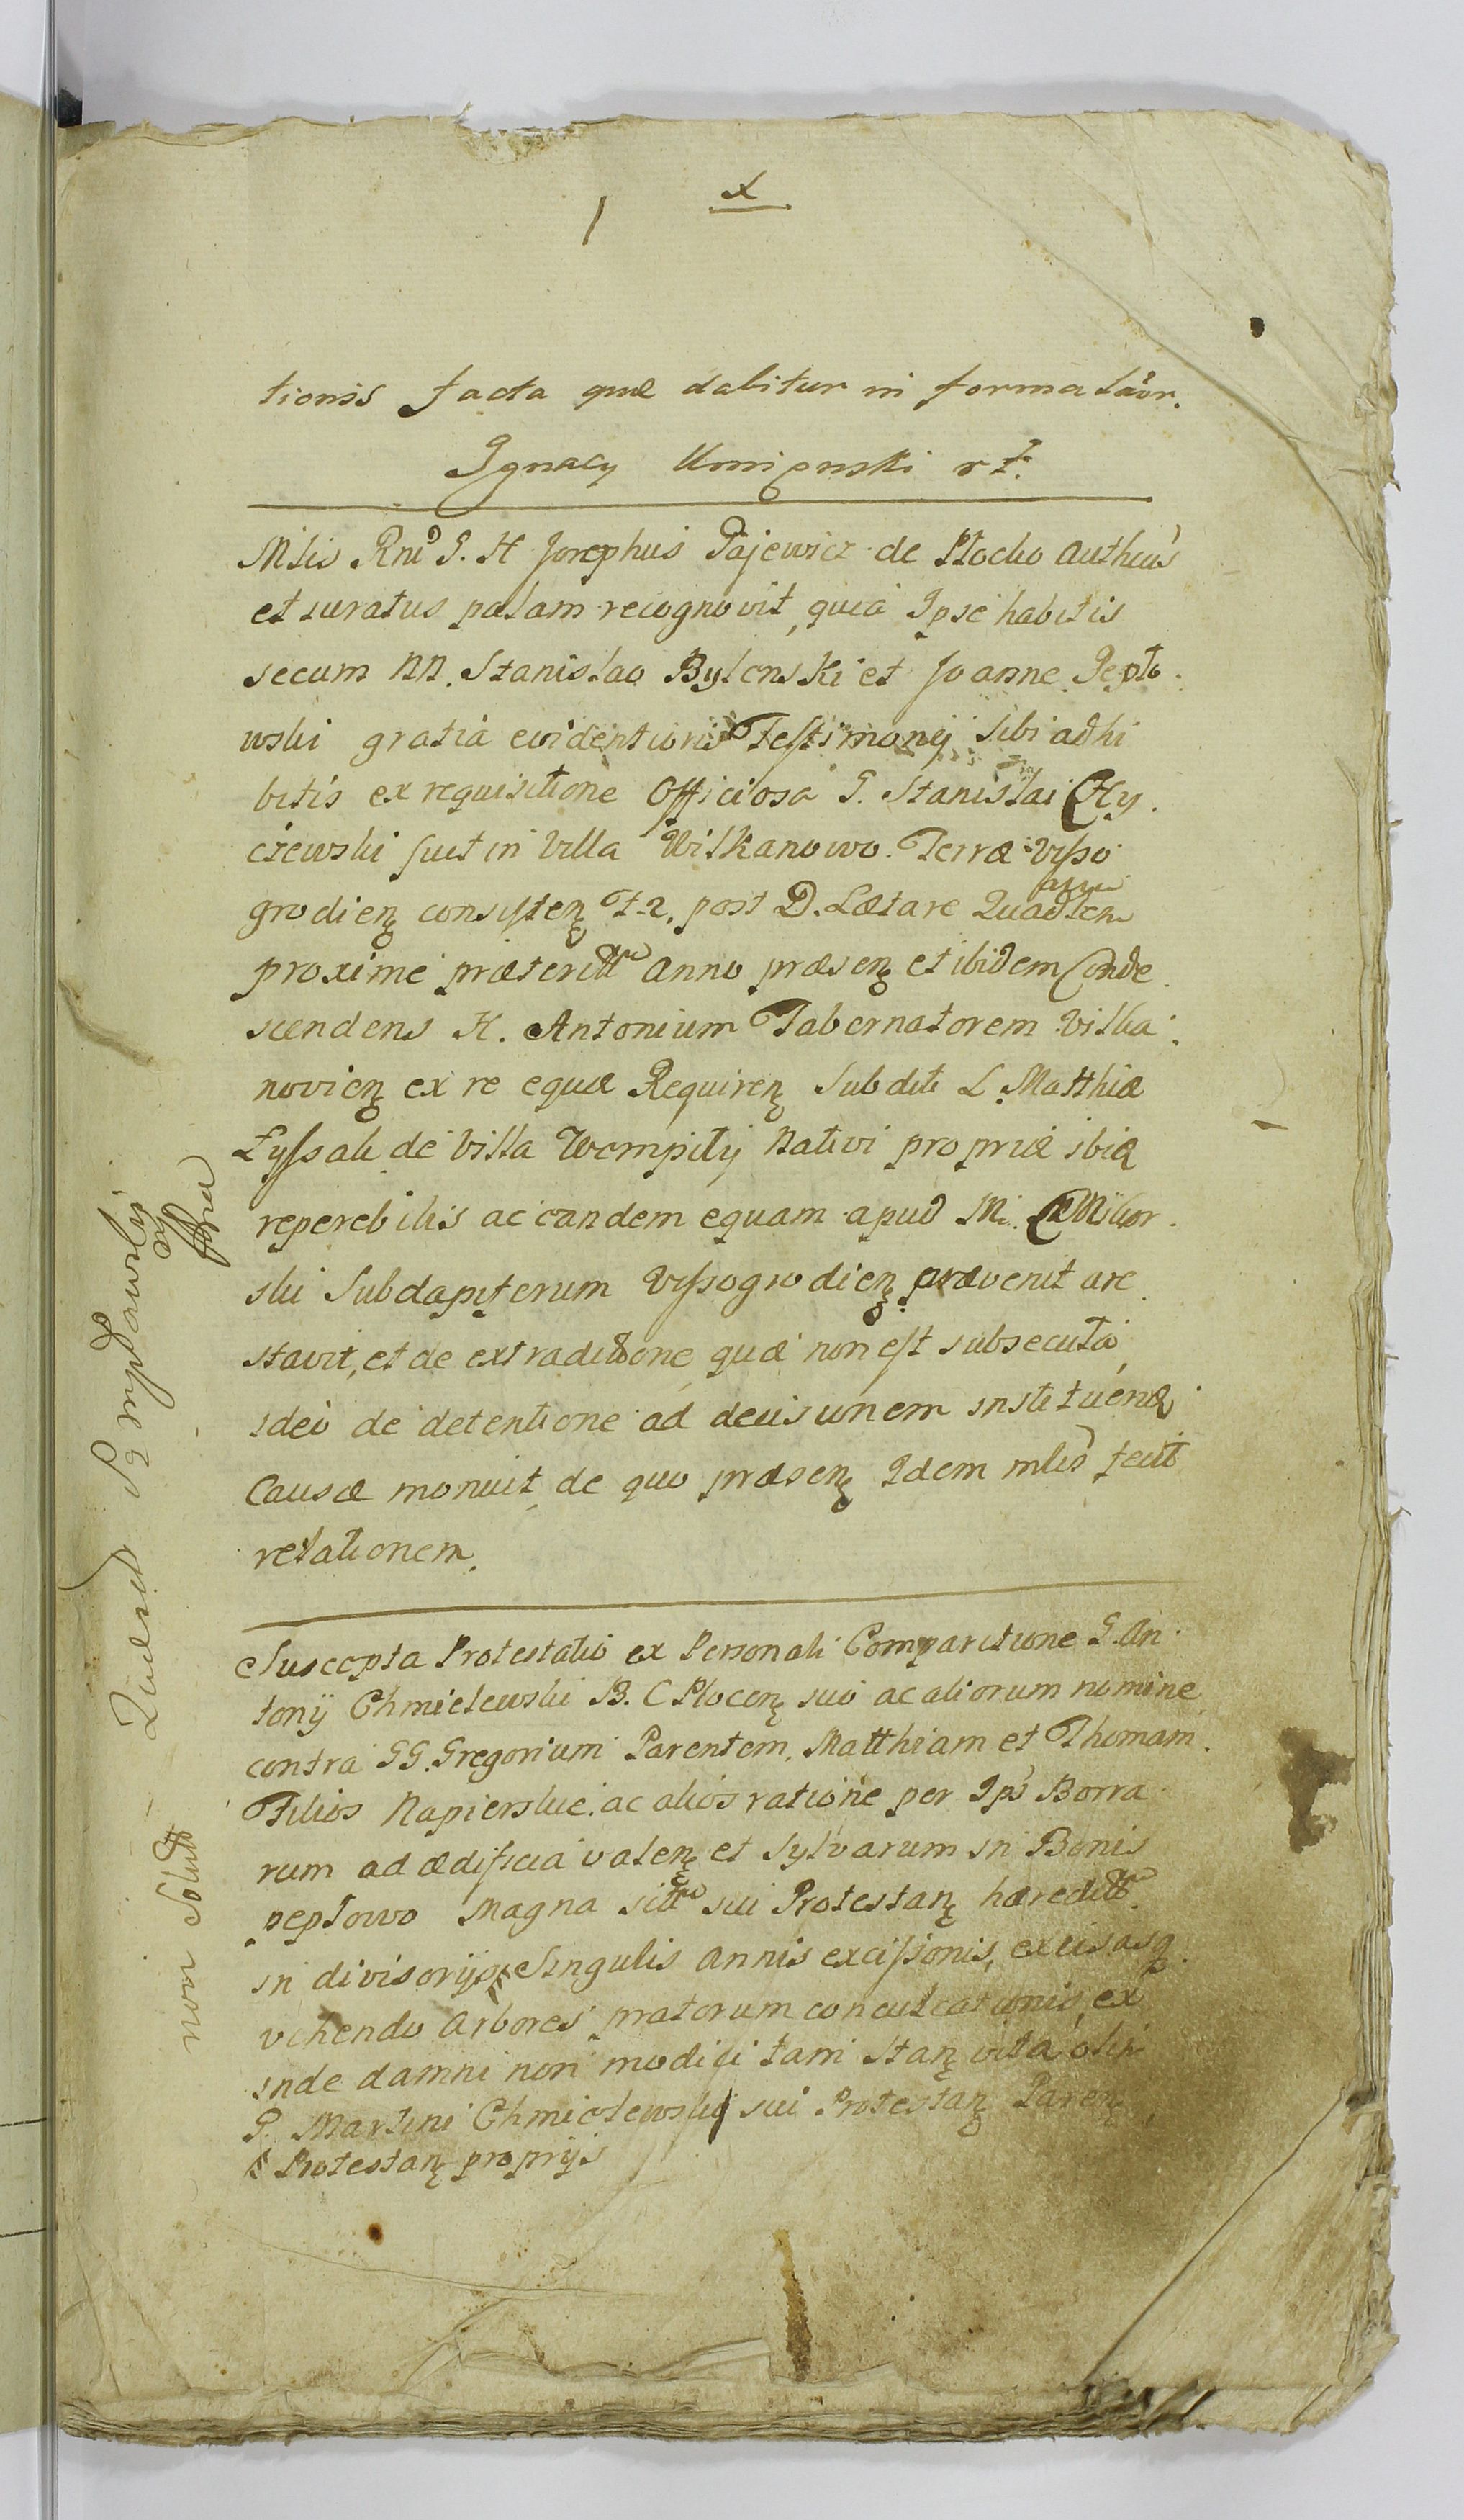 tionis facta quæ dabitur in forma
Ignacy
Mtis Rni G. H Josephus Pajewicz de Plocko Authcus
et iuratus palam recognovit, quia Ipse habitis
secum NN. Stanislao Bylenski et Joanne Pepło
wski gratia evidentioris Testimonij sibi adhi
bitis ex requisitione Officiosa G. Stanislai
czewski fuit in Villa Wilkanowo Terræ Visso
grodien consisten F. 2. post D. Lætare
proxime præteritt anno præsen et ibidem Conde
scendens H. Antonium Tabernatorem Vilka
novien ex re equæ Requiren Subditi L. Matthiæ
Łyssak de Villa Wempiły Nativi propriæ ibid
reperebilis ac eandem equam apud M.
ski Subdapiferum Vissogrodien prævenit are
stavit, et de extraditione quæ non est subsecuta
ideo de detentione ad decisionem instituend
Causæ monuit de quo præsen Idem mlis fecit
relationem.
Suscepta Protestatio ex Personali Comparitione G. An
tonij Chmielewski B. C Plocen suo ac aliorum nomine
contra GG. Gregorium Parentem, Matthiam et Thomam
Filios Napierskie ac alios ratione per Ips Borra
rum ad ædificia valen et Sylvarum in Bonis
pepłowo Magna sitt sui Protestan hæreditt
in divisorijs Singulis Annis excissionis, excisasq
vehendo Arbores pratorum conculcationis, ex
inde damni non modici tam Stan vita olim
G. Martini Chmielewski sui Protestan Paren
Protestan proprijs
non Solutt